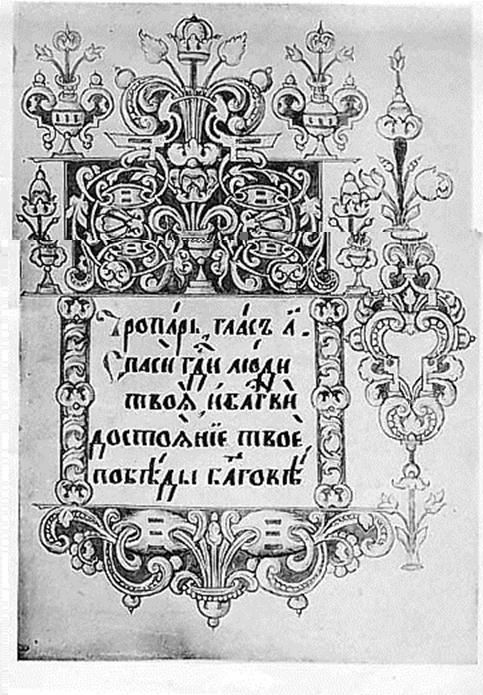 Тропа́рь, гла́съ а҃.
Спасѝ гдⷭ҇и лю́ди
твоѧ̀, и҆ блг҇вѝ
достоѧ́нїе твоѐ
побѣ́ды бл҃говѣ́